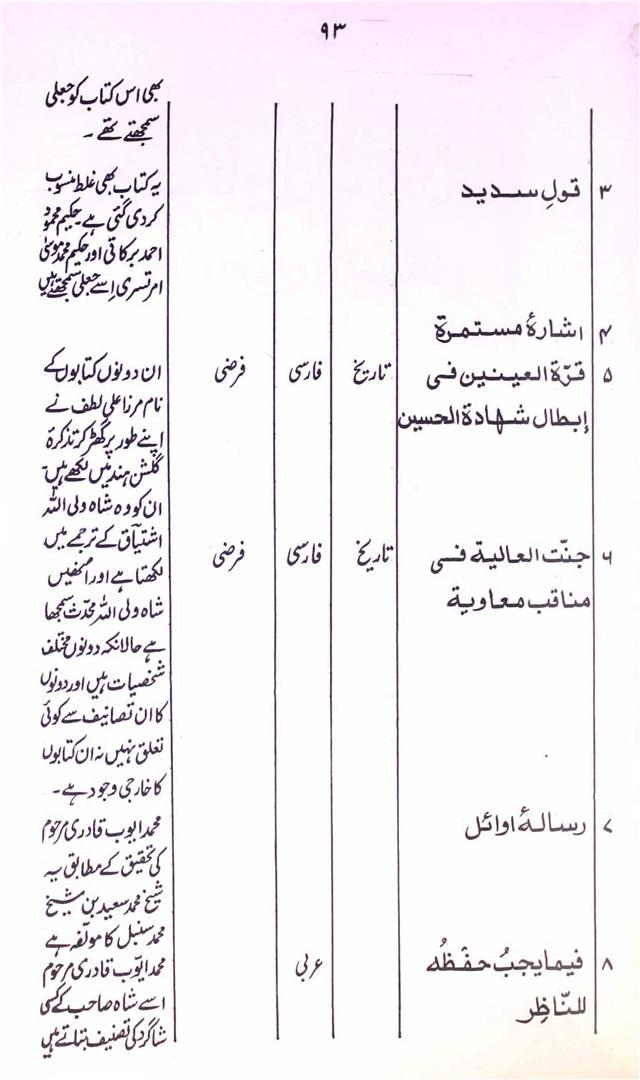 ۹۳
بھی اس کتاب کو جعلی
سمجھتے تھے ۔
۳ قولِ سدید
یہ کتاب بھی غلط منسوب
کر دی گئی ہے حکیم محمود
احمد برکاتی اور حکیم محمد موسیٰ
امرتسری اسے جعلی سمجھتے ہیں
۴ اشارۂ مستمرۃ
۵ قرّۃ العینین فی تاریخ فارسی فرضی
إبطال شہادۃ الحسین
ان دونوں کتابوں کے
نام مرزا علی لطف نے
اپنے طور پر گھڑ کر تذکرۂ
گلشنِ ہند میں لکھے ہیں
ان کو وہ شاہ ولی اللہ
اشتیاق کے ترجمے میں
۶ جنّت العالیة فی تاریخ فارسی فرضی
مناقب معاویة
لکھتا ہے اور انھیں
شاہ ولی اللہ محدّث سمجھا
ہے حالانکہ دونوں مختلف
شخصیات ہیں اور دونوں
کا ان تصانیف سے کوئی
تعلق نہیں نہ ان کتابوں
کا خارجی وجود ہے ۔
۷ رسالۂ اوائل
محمد ایوب قادری مرحوم
کی تحقیق کے مطابق یہ
شیخ محمد سعید بن شیخ
محمد سنبل کا مولّفہ ہے
۸ فیما یجبُ حفظُہ عربی
للنّاظِر
محمد ایّوب قادری مرحوم
اسے شاہ صاحب کے کسی
شاگرد کی تصنیف بتاتے ہیں